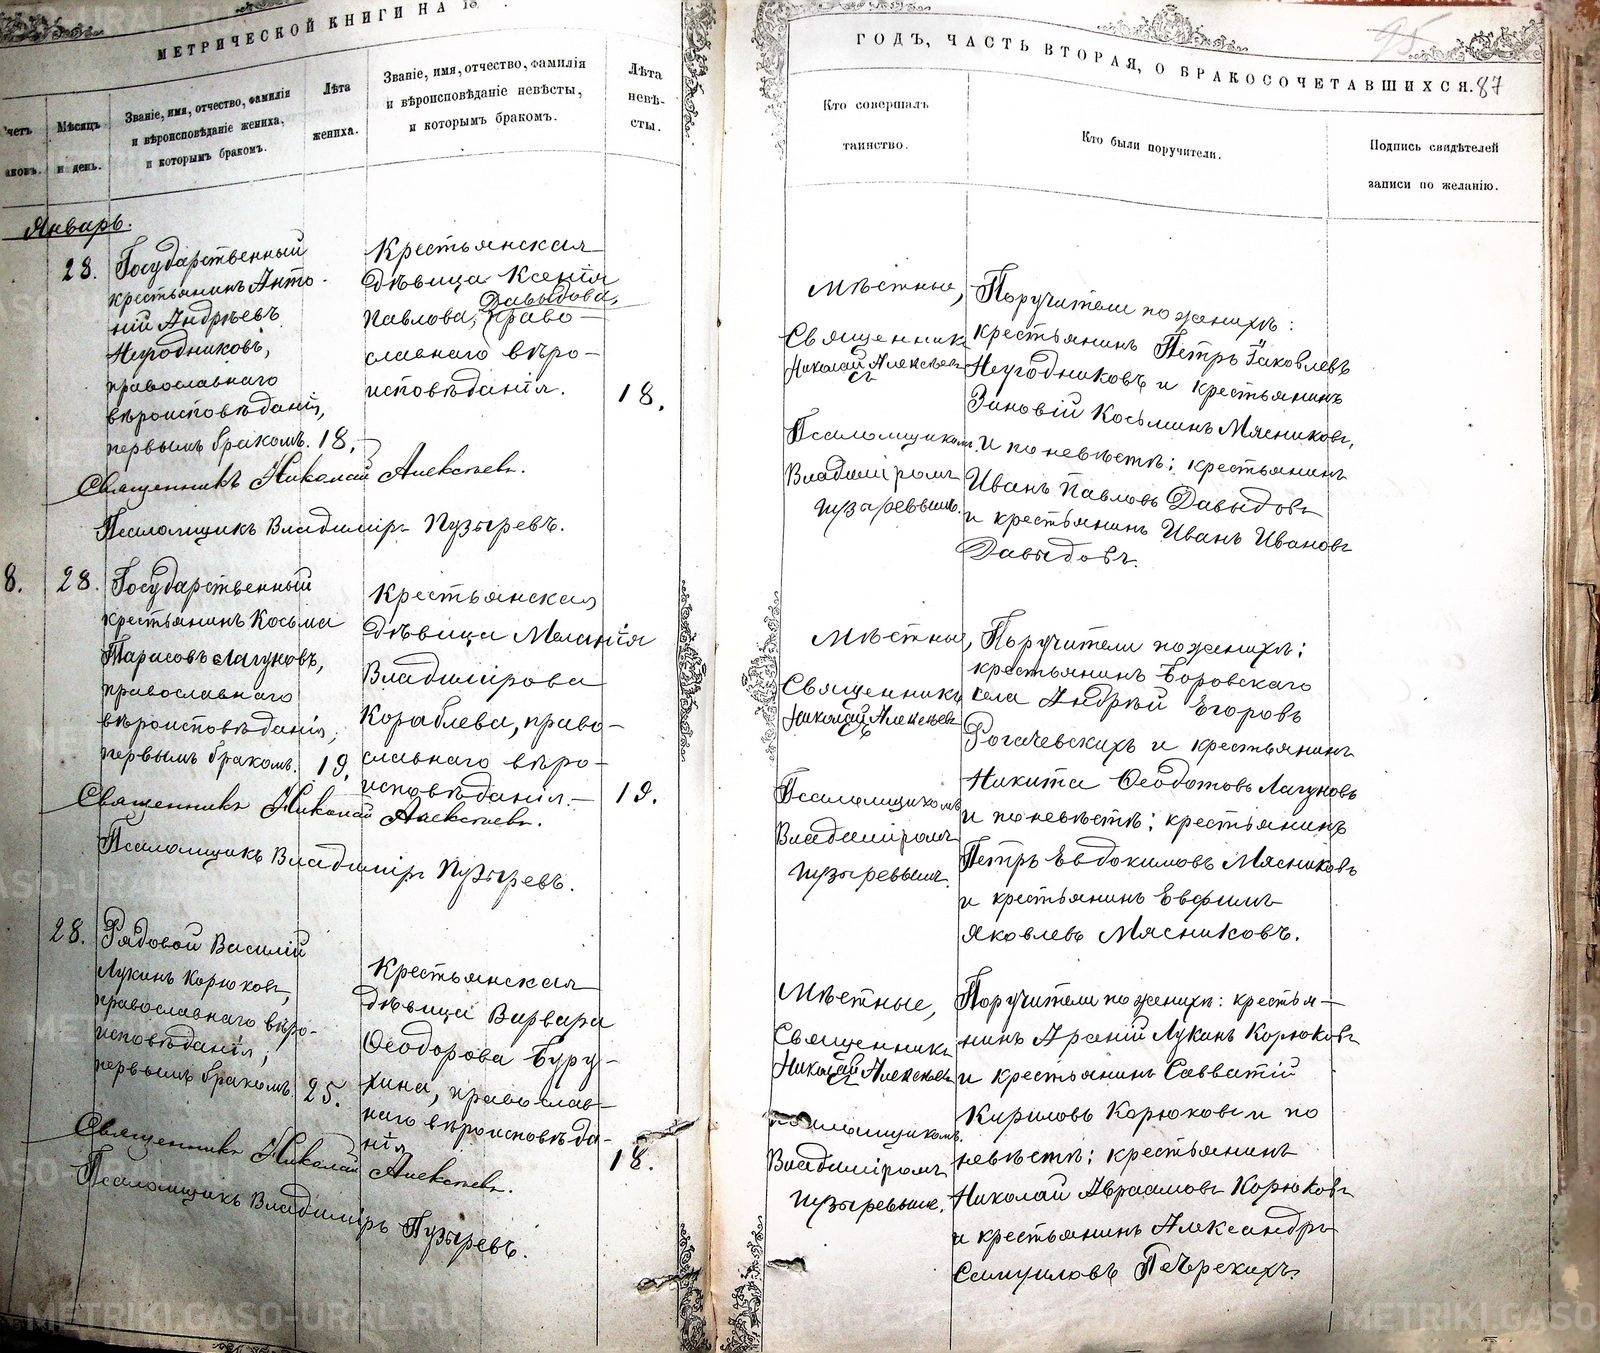 МЕТРИЧЕСКОЙ КНИГИ НА 18
четъ
аковъ.
Мѣсяцъ
и день.
Званіе, имя, отчество, фамилія
и вѣроисповѣданіе жениха,
и которымъ бракомъ.
Лѣта
жениха.
Званіе, имя, отчество, фамилія
и вѣроисповѣданіе невѣсты,
и которымъ бракомъ.
Лѣта
невѣ-
сты.
Январь.
28.
Государственный
крестьянинъ Анто-
ній Андрѣевъ
Неугодниковъ,
православнаго
вѣроисповѣданія,
первымъ бракомъ.
18,
Крестьянская
дѣвица Ксенія
Давыдова,
Павлова, право-
славнаго вѣро-
исповѣданія.
18.
Священникъ Николай Алексѣевъ.
Псаломщикъ Владиміръ Пузыревъ.
8.
28.
Государственный
крестьянинъ Косьма
Тарасовъ Лагуновъ,
православнаго
вѣроисповѣданія,
первымъ бракомъ.
19,
Крестьянская
дѣвица Меланія
Владимірова
Кораблева, право-
славнаго вѣро-
исповѣданія.-
19.
Священникъ Николай Алексѣевъ.
Псаломщикъ Владиміръ Пузыревъ.
28.
Рядовой Василій
Лукинъ Корюковъ,
православнаго вѣро-
исповѣданія;
первымъ бракомъ.
25.
Крестьянская
дѣвица Варвара
Ѳеодорова Буру-
хина, православ-
наго вѣроисповѣда-
нія
18.
Священникъ Николай Алексѣевъ.
Псаломщикъ Владиміръ Пузыревъ.
95
ГОДЪ, ЧАСТЬ ВТОРАЯ, О БРАКОСОЧЕТАВШИХСЯ.
87
Кто совершалъ
таинство.
Кто были поручители.
Подпись свидѣтелей
записи по желанію.
Мѣстные,
Священникъ
Николай Алексѣевъ
съ
Псаломщикомъ
Владиміромъ
Пузыревымъ.
Поручители по женихѣ:
крестьянинъ Петръ Іаковлевъ
Неугодниковъ и крестьянинъ
Зиновій Косьминъ Мясниковъ,
и по невѣстѣ: крестьянинъ
Иванъ Павловъ Давыдовъ
и крестьянинъ Иванъ Ивановъ
Давыдовъ.
Мѣстные,
Священникъ
Николай Алексѣевъ
съ
Псаломщикомъ
Владиміромъ
Пузыревымъ.
Поручители по женихѣ:
крестьянинъ Боровскаго
села Андрей Егоровъ
Рогачевскихъ и крестьянинъ
Никита Ѳеодотовъ Лагуновъ
и по невѣстѣ: крестьянинъ
Петръ Евдокимовъ Мясниковъ
и крестьянинъ Евфимъ
Яковлевъ Мясниковъ.
Мѣстные,
Священникъ
Николай Алексѣевъ
съ
Псаломщикомъ
Владиміромъ
Пузыревымъ.
Поручители по женихѣ: крестья-
нинъ Лукинъ Корюковъ
и крестьянинъ Савватій
Кириловъ Корюковъ и по
невѣстѣ: крестьянинъ
Николай Авраамовъ Корюковъ
и крестьянинъ Александръ
Самуиловъ Печерскихъ.
METRIKI.GASO-URAL.RU
METRIKI.GASO